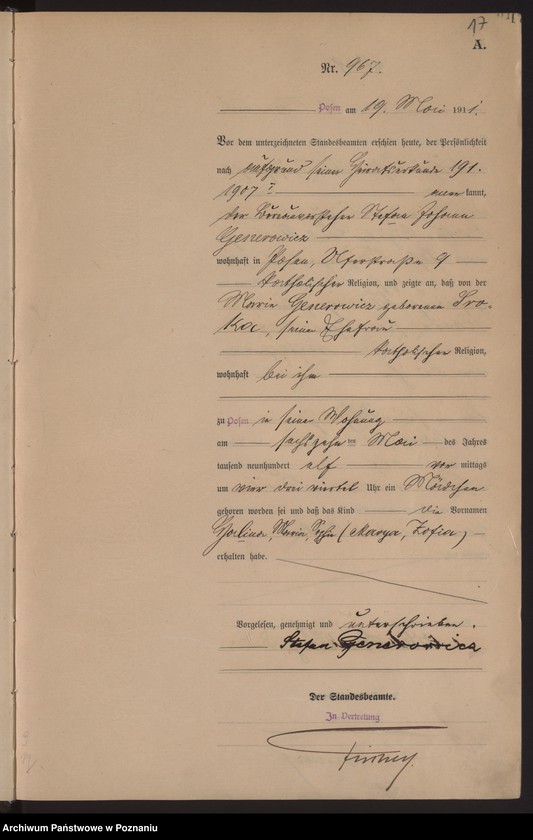 17
A.
Nr. 967.
Posen am 19. Mai 1911.
Vor dem unterzeichneten Standesbeamten erschien heute, der Persönlichkeit
nach aufgrund seiner Heiratsurkunde 191.
1907 kannt,
der Stefan Johann
Generowicz
wohnhaft in Posen, Uferstraße 9
katholischer Religion, und zeigte an, daß von der
Maria Generowicz geborenen Sro-
ka, seiner Ehefrau
katholischer Religion,
wohnhaft bei ihm
zu Posen in seiner Wohnung
am sechszehnten Mai des Jahres
tausend neunhundert elf vor mittags
um vier drei viertel Uhr ein Mädchen
geboren worden sei und daß das Kind die Vornamen
Halina, Maria, Sophie (Marya, Zofia)
erhalten habe.
Vorgelesen, genehmigt und unterschrieben.
Stefan Generowicz
Der Standesbeamte.
In Vertretung
Archiwum Państwowe w Poznaniu